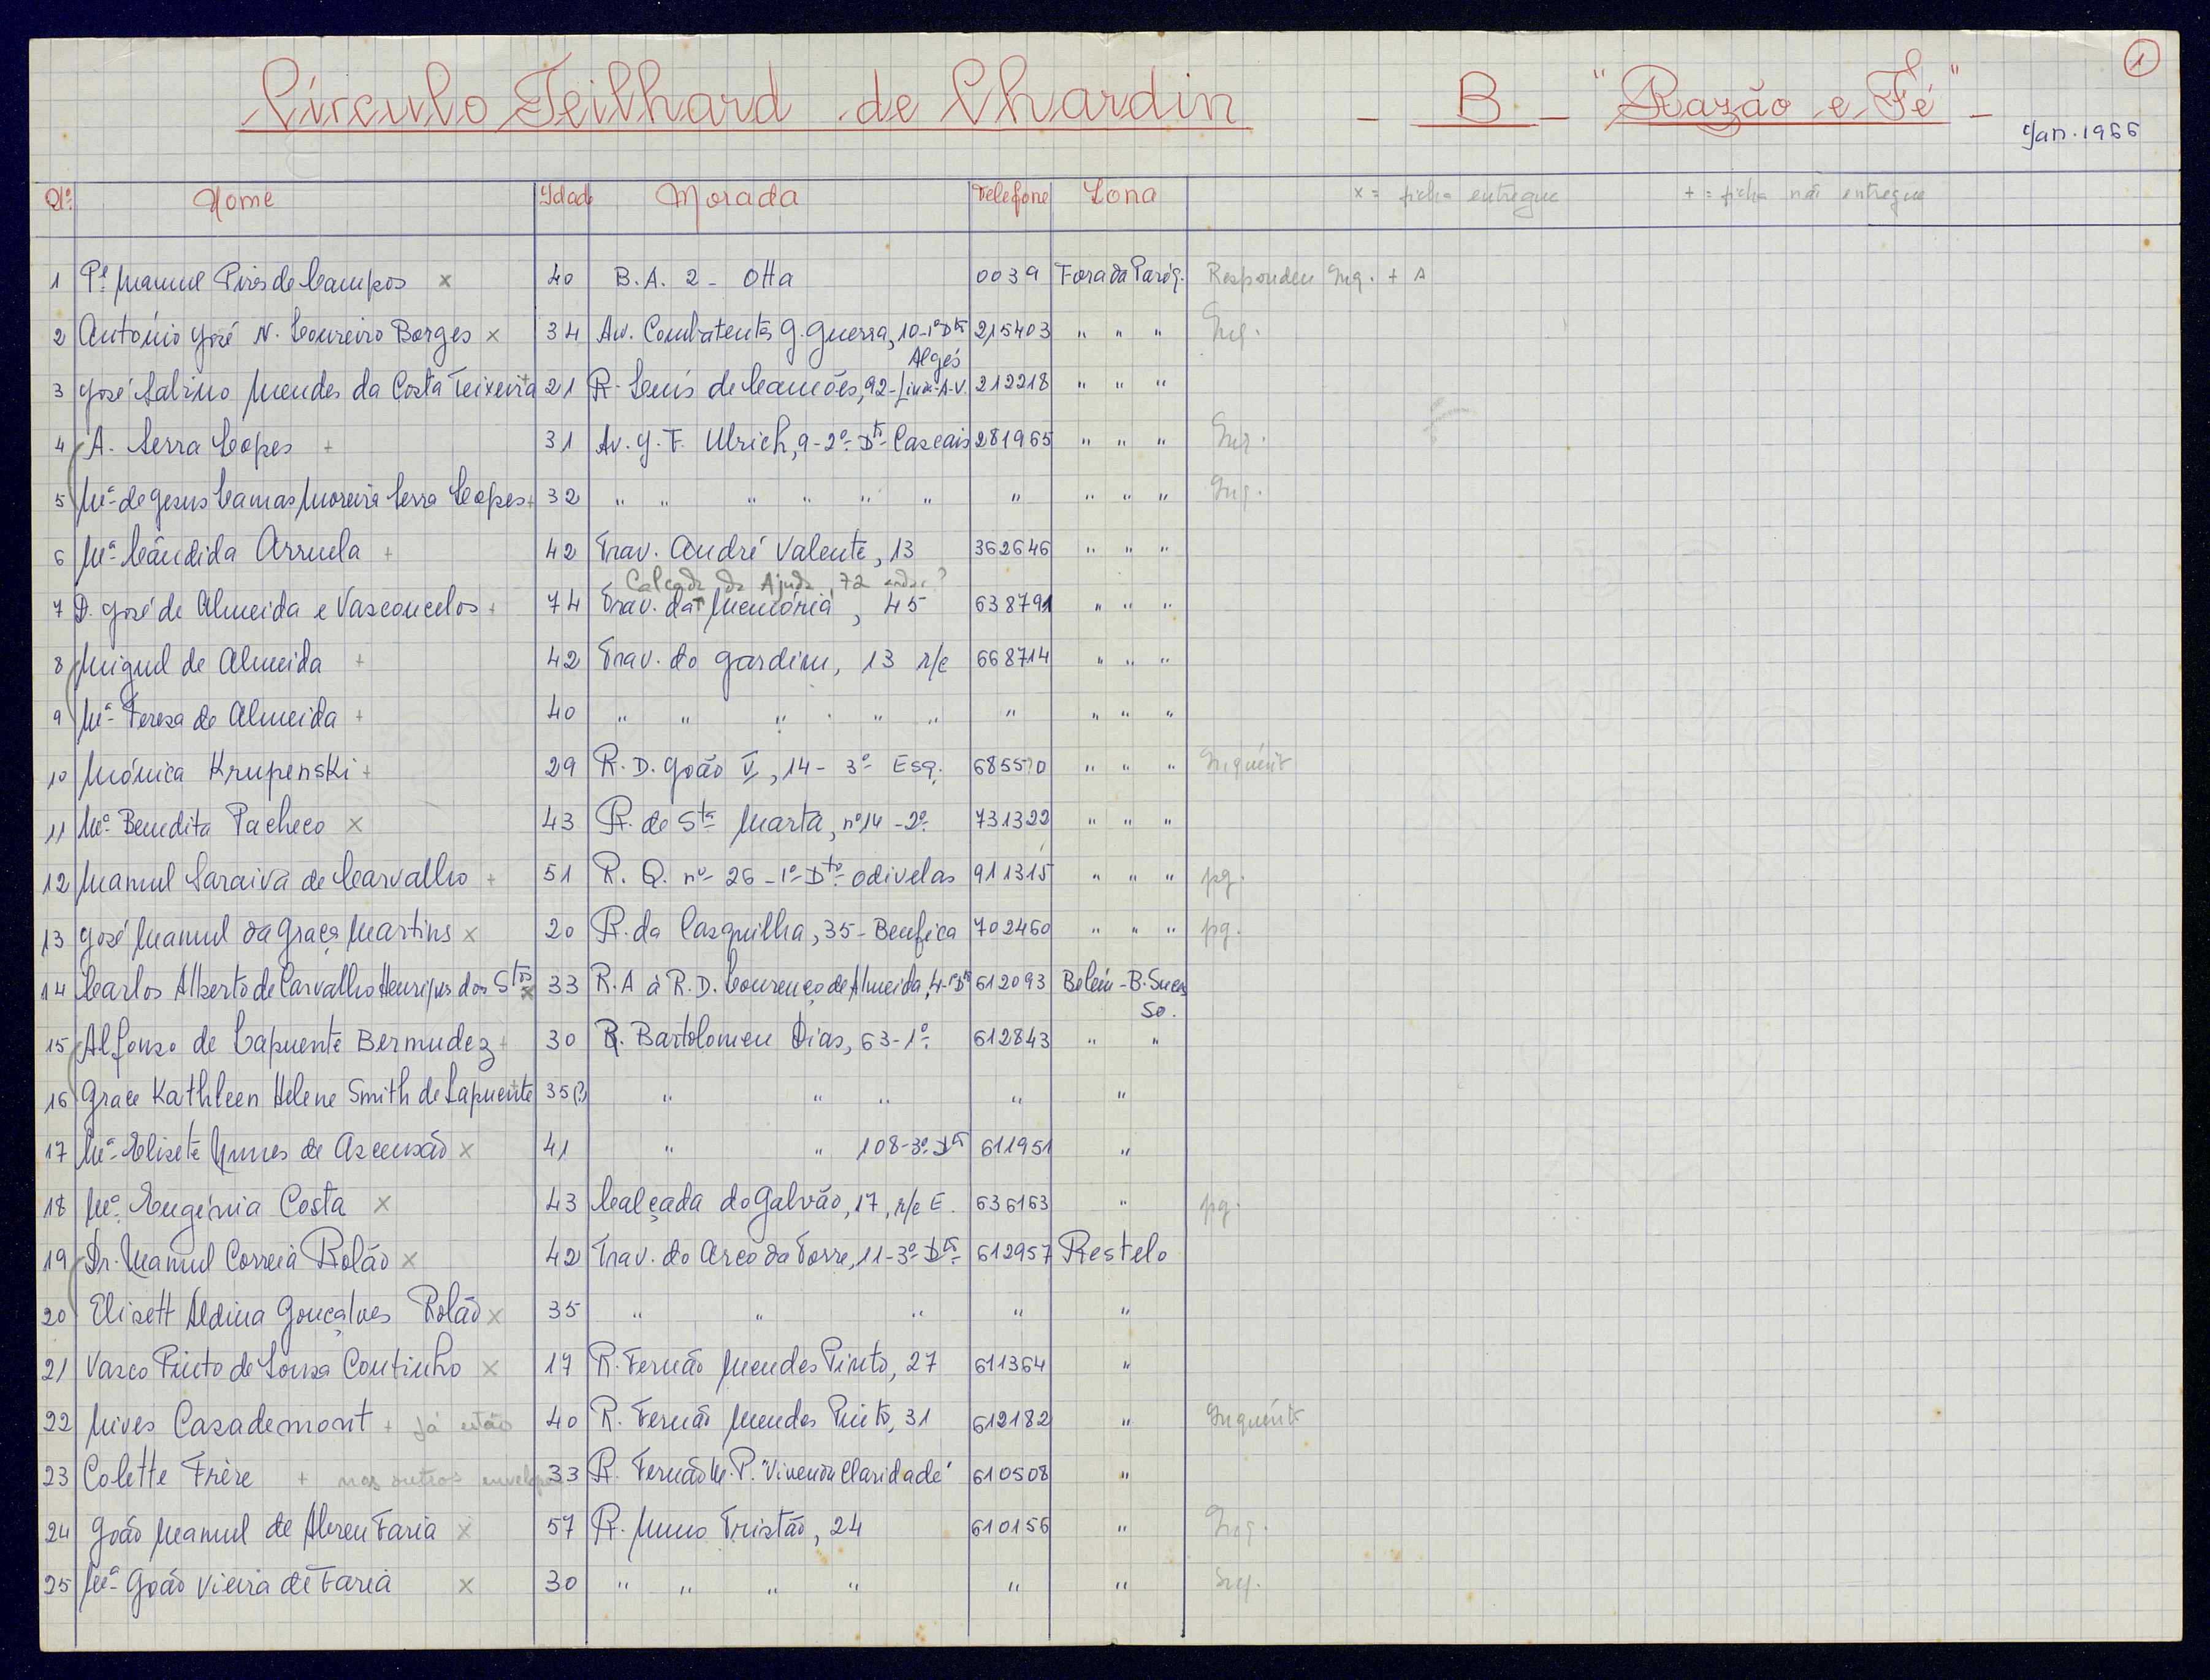 1
Círculo Teilhard de Chardin - B - "Razão e Fé" -
Jan. 1966
Nº Nome Idade Morada Telefone Zona x = ficha entregue + = ficha não entregue
1 Pe. Manuel Pires de Campos x 40 B.A. 2 - Otta 0039 Fora da Paróq. Respondeu Inq. + A
2 António José N. Loureiro Borges x 34 Av. Combatentes G. Guerra, 10-1º Dto 215403 " " " Inq.
Algés
3 José Salvino Mendes da Costa Teixeira + 21 R. Luís de Camões, 92 - Linda-A-V. 212218 " " "
4 A. Serra Lopes + 31 Av. J. F. Ulrich, 9-2º Dto - Cascais 281965 " " " Inq.
5 Mª de Jesus Lamas Moreira Serra Lopes + 32 " " " " " " " " " " Inq.
6 Mª Cândida Arruela + 42 Trav. André Valente, 13 362646 " " "
Calçada da Ajuda, 72 andar?
7 D. José de Almeida e Vasconcelos + 74 Trav. da Memória, 45 638791 " " "
8 Miguel de Almeida + 42 Trav. do Jardim, 13 r/c 668714 " " "
9 Mª Teresa de Almeida + 40 " " " " " " " " "
10 Mónica Krupenski + 29 R. D. João V, 14 - 3º Esq. 685570 " " " Inquérito
11 Mª Benedita Pacheco x 43 R. de Sta Marta, nº 14 - 2º 731322 " " "
12 Manuel Saraiva de Carvalho + 51 R. Q. nº 26 - 1º Dto Odivelas 911315 " " " pg.
13 José Manuel da Graça Martins x 20 R. da Casquilha, 35 - Benfica 702460 " " " pg.
14 Carlos Alberto de Carvalho Henriques dos Stos x 33 R. A à R. D. Lourenço de Almeida, 4-1º Dto 612093 Belém - B. Suces
so.
15 Alfonso de Lapuente Bermudez + 30 R. Bartolomeu Dias, 63-1º 612843 " "
16 Grace Kathleen Helene Smith de Lapuente + 35(?) " " " " "
17 Mª Elisete Nunes de Ascensão x 41 " " 108-3º Dto 611951 "
18 Mª Eugénia Costa x 43 Calçada do Galvão, 17, r/c E. 636163 " pg.
19 Dr. Manuel Correia Rolão x 42 Trav. do Arco da Torre, 11-3º Dto 612957 Restelo
20 Elisett Aldina Gonçalves Rolão x 35 " " " " "
21 Vasco Pinto de Sousa Coutinho x 17 R. Fernão Mendes Pinto, 27 611364 "
22 Nives Casademont + já estão 40 R. Fernão Mendes Pinto, 31 612182 " Inquérito
23 Colette Frère + nos outros envelopes 33 R. Fernão M. P. "Vivenda Claridade" 610508 "
24 João Manuel de Abreu Faria x 57 R. Nuno Tristão, 24 610156 " Inq.
25 Mª João Vieira de Faria x 30 " " " " " " Inq.